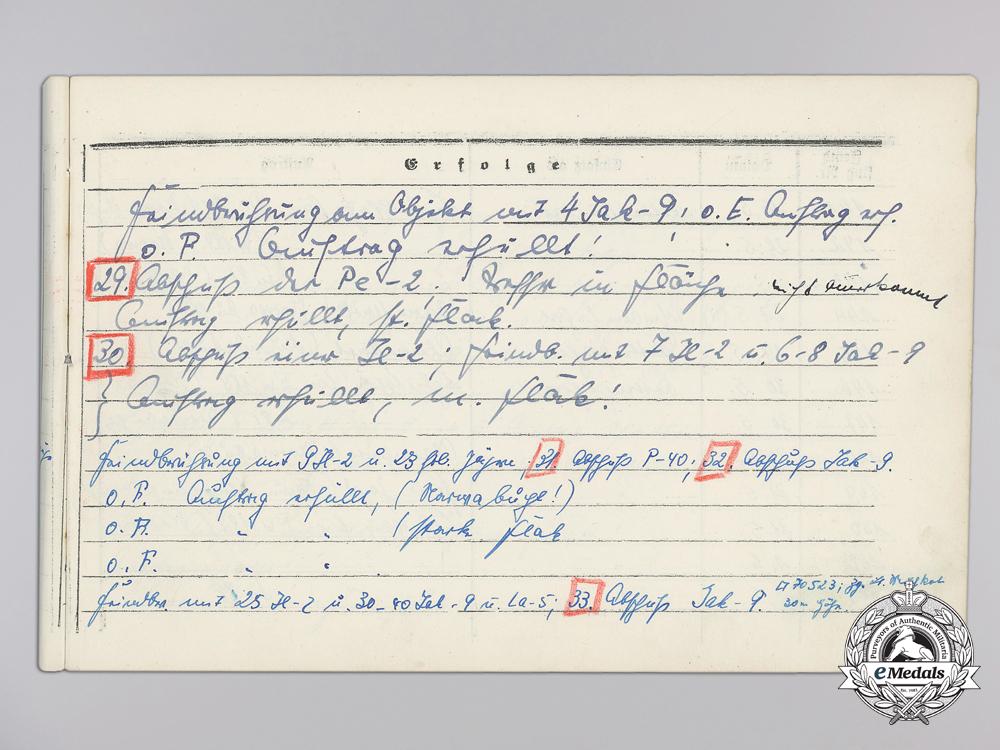 Erfolge
Feindberührung am Objekt mit 4 Jak-9; o. E. Auftrag erf.
o. F. Auftrag erfüllt!
29. Abschuß der Pe-2. Treffer in Fläche nicht anerkannt
Auftrag erfüllt, st. Flak.
30 Abschuß einer Il-2; Feindb. mit 7 Il-2 u. 6-8 Jak-9
Auftrag erfüllt, m. Flak!
Feindberührung mit 9 Il-2 u. 23 Jäger; 31. Abschuß P-40; 32. Abschuß Jak-9.
o. F. Auftrag erfüllt, (Narwa bugt!)
o. F. " " (stark. Flak
o. F. " "
Feindber. mit 25 Il-2 u. 30-40 Jak-9 u. La-5; 33. Abschuß Jak-9. 70523;
30m Höhe
Purveyors of Authentic Militaria
eMedals